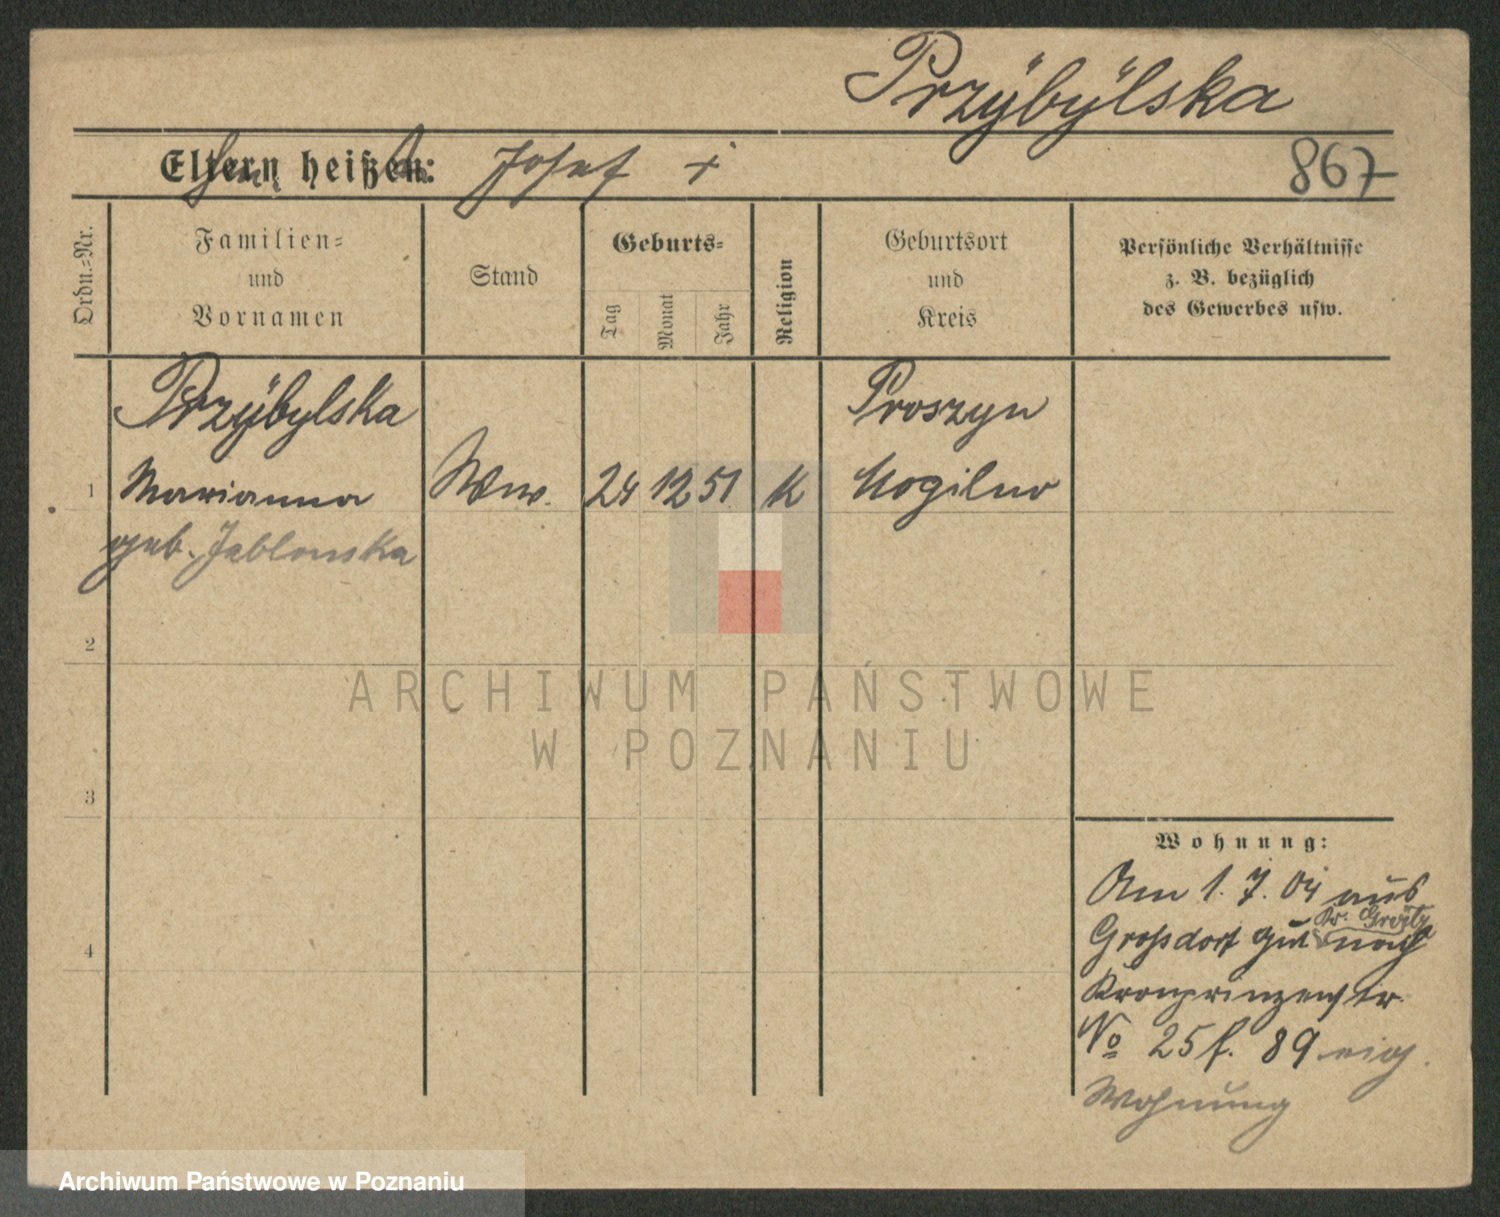 Przÿbÿlska
Eltern heißen: Josef +
867
Ordn.-Nr.
Familien-
und
Vornamen
Stand
Geburts-
Tag
Monat
Jahr
Religion
Geburtsort
und
Kreis
Persönliche Verhältnisse
z. B. bezüglich
des Gewerbes usw.
Przÿbylska
Proszyn
1 Marianna Ww. 24 12 51 K Mogilno
geb. Jablonska
2
3
4
Wohnung:
Am 1. 7. 04 aus
Kr. Grätz
Grossdorf gut nach
Kronprinzenstr.
No 25 f. 89 eig.
Wohnung
ARCHIWUM PAŃSTWOWE
W POZNANIU
Archiwum Państwowe w Poznaniu